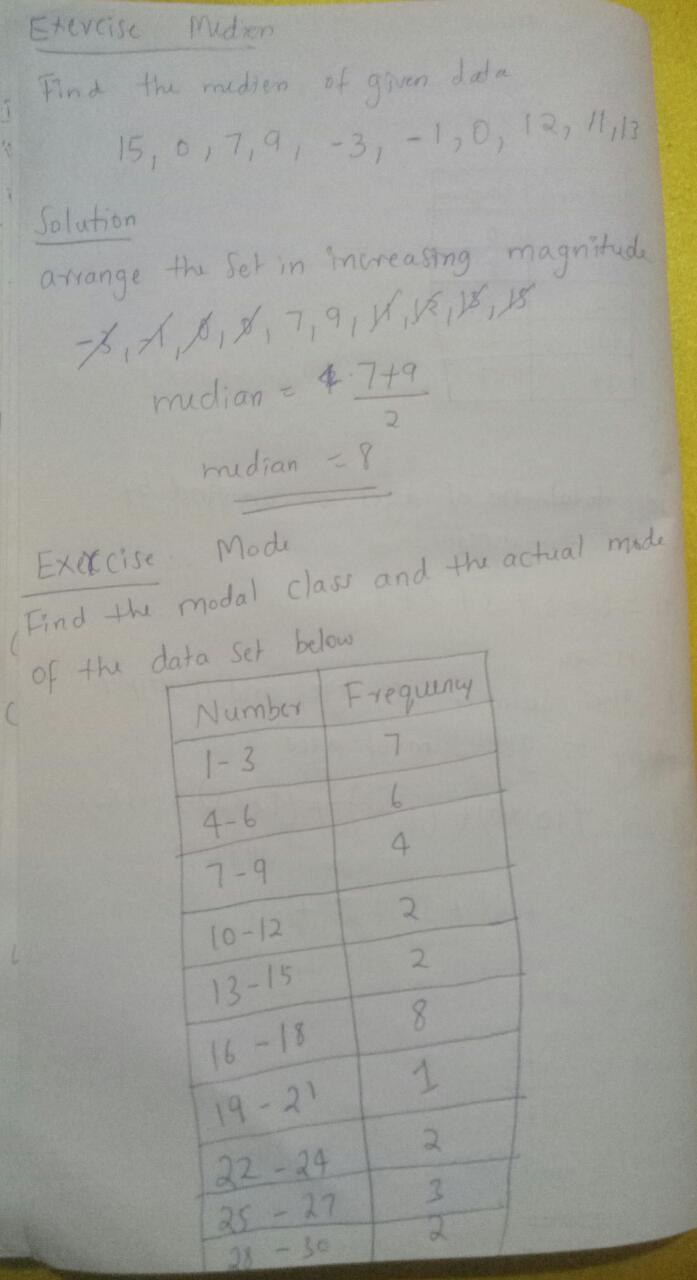 Exercise Median
Find the medien of given data
15, 0, 7, 9, -3, -1, 0, 12, 11, 13
Solution
arrange the Set in increasing magnitude
-3, -1, 0, 0, 7, 9, 11, 12, 13, 15
median = 7+9
2
median = 8
Exercise Mode
Find the modal class and the actual mode
of the data set below
Number Frequency
1-3 7
4-6 6
7-9 4
10-12 2
13-15 2
16-18 8
19-21 1
22-24 2
25-27 3
28-30 2